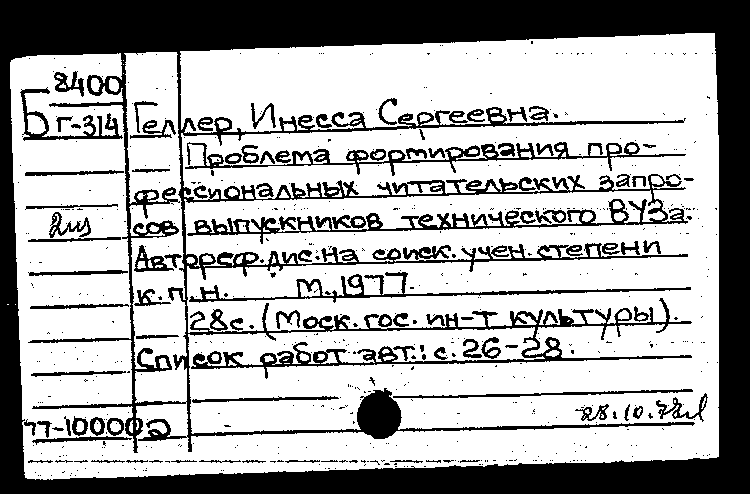 Б 8400
Г-314
Геллер, Инесса Сергеевна.
Проблема формирования про-
фессиональных читательских запро-
сов выпускников технического ВУЗа.
Автореф. дис. на соиск. учен. степени
к.п.н. М., 1977.
28с. (Моск. гос. ин-т культуры).
Список работ авт.: с. 26-28.
77-10000
28.10.